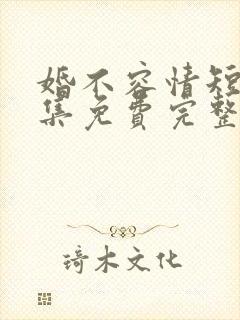 婚不容情短
集免费完整
琦木文化